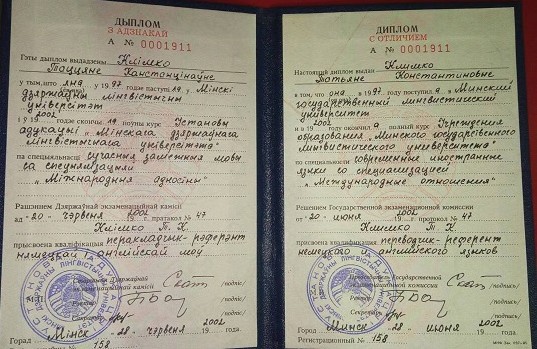 ДЫПЛОМ
З АДЗНАКАЙ
А № 0001911
Гэты дыплом выдадзены Клімко
Таццяне Канстанцінаўне
у тым, што яна у 1997 годзе паступіла у Мінскі
дзяржаўны лінгвістычны
ўніверсітэт
і ў 2002 годзе скончыла поўны курс Установы
адукацыі „Мінскага дзяржаўнага
лінгвістычнага ўніверсітэта"
па спецыяльнасці сучасныя замежныя мовы
са спецыялізацыяй
„Міжнародныя адносіны"
Рашэннем Дзяржаўнай экзаменацыйнай камісіі
ад „20" чэрвеня 2002 г. пратакол № 47
Клімко Т. К.
прысвоена кваліфікацыя перакладчык-рэферэнт
нямецкай і англійскай моў
Старшыня Дзяржаўнай
экзаменацыйнай камісіі /подпіс/
Рэктар /подпіс/
Сакратар /подпіс/
М.П.
Горад Мінск „28" чэрвеня 2002 года
158
ДИПЛОМ
С ОТЛИЧИЕМ
А № 0001911
Настоящий диплом выдан Климко
Татьяне Константиновне
в том, что она в 1997 году поступила в Минский
государственный лингвистический
университет
и в 2002 году окончила полный курс Учреждения
образования „Минского государственного
лингвистического университета"
по специальности современные иностранные
языки со специализацией
„Международные отношения"
Решением Государственной экзаменационной комиссии
от „20" июня 2002 г. протокол № 47
Климко Т. К.
присвоена квалификация переводчик-референт
немецкого и английского языков
Председатель Государственной
экзаменационной комиссии /подпись/
Ректор /подпись/
Секретарь /подпись/
Город Минск „28" июня 2002 года
Регистрационный № 158